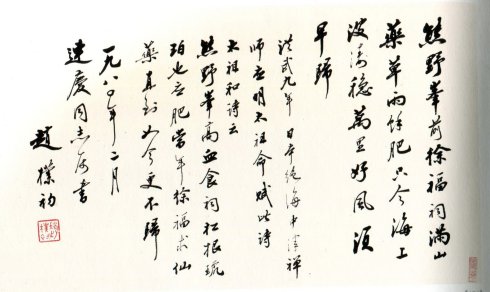 熊野峰前徐福祠满山
药草雨馀肥只今海上
波涛稳万里好风须
早归
洪武九年日本绝海中津禅
师应明太祖命赋此诗
太祖和诗云
熊野峰高血食祠松根琥
珀也应肥当年徐福求仙
药直到如今更不归
一九八〇年二月
建庆同志属书
赵朴初